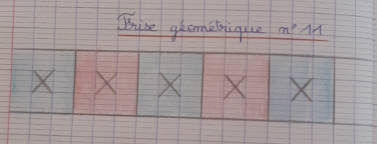 Frise géométrique n° 11